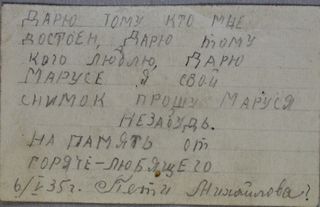 ДАРЮ ТОМУ КТО МНЕ
ДОСТОЕН, ДАРЮ ТОМУ
КОГО ЛЮБЛЮ, ДАРЮ
МАРУСЕ Я СВОЙ
СНИМОК ПРОШУ МАРУСЯ
НЕЗАБУДЬ.
НА ПАМЯТЬ ОТ
ГОРЯЧЕ-ЛЮБЯЩЕГО
6/V 35г. Пети Михайлова